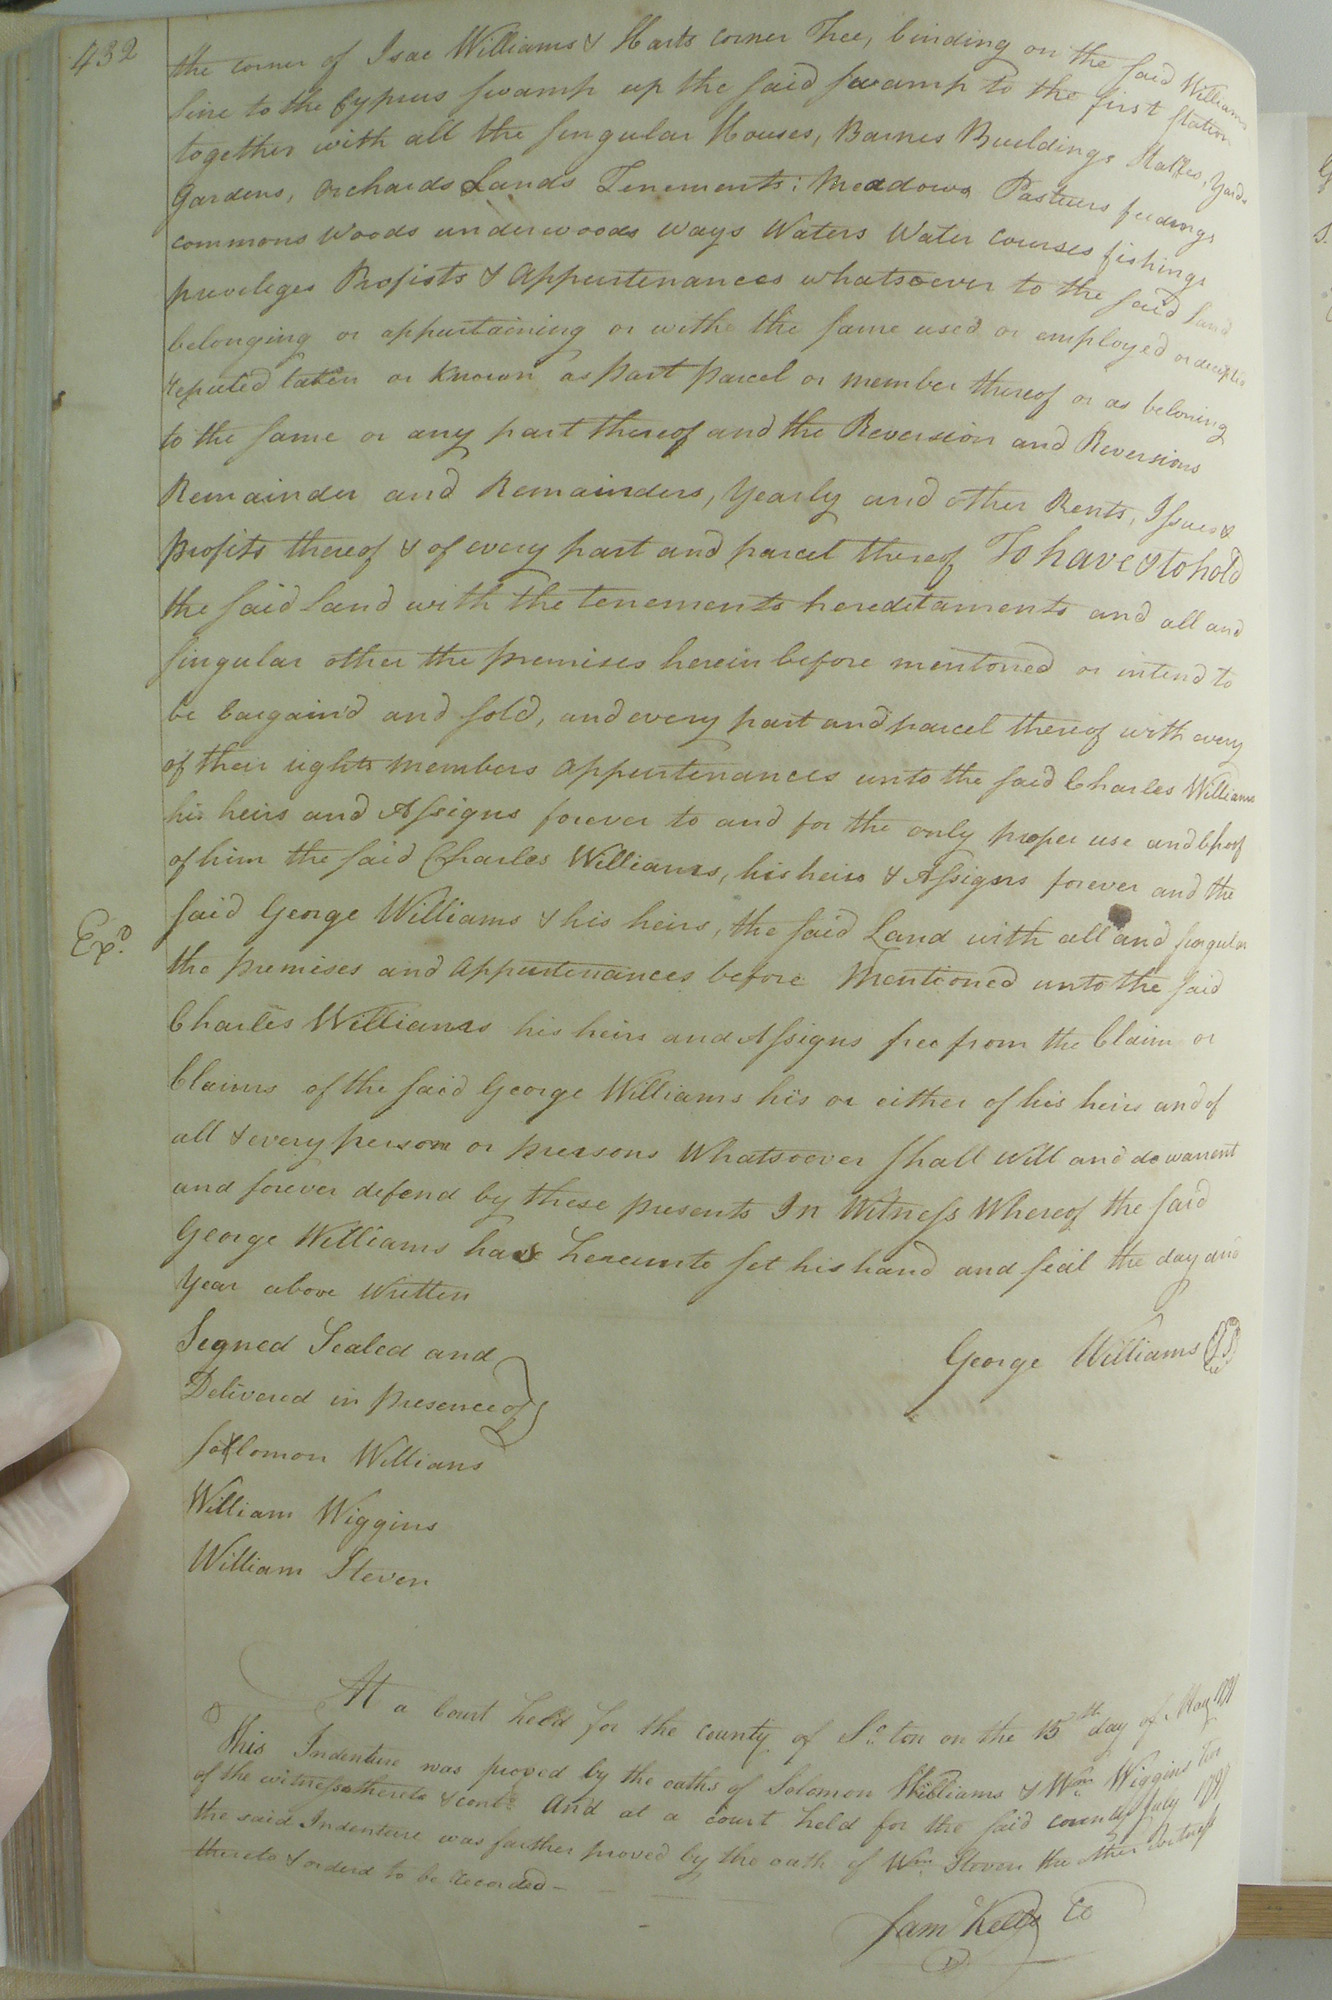 432
the corner of Isac Williams & Harts corner Tree, binding on the said Williams
line to the Cyprus swamp up the said swamp to the first station
together with all the singular Houses, Barnes Buildings Stables, Yards
Gardens, orchards Lands Tenements; Meadows Pastures feedings
commons Woods underwoods ways Waters Water courses fishings
preveleges Profists & Appurtenances whatsoever to the said Land
belonging or appurtaining or with the same used or employed or
reputed taken or Known as part parcel or member thereof or as beloning
to the same or any part thereof and the Reversion and Reversions
Remainder and Remainders, yearly and other Rents, Issues &
profits thereof & of every part and parcel thereof To have & to hold
the said Land with the tenements hereditaments and all and
singular other the premises herein before mentoned or intend to
be bargain'd and sold, and every part and parcel thereof with every
of their rights members appurtenances unto the said Charles Williams
his heirs and Assigns forever to and for the only proper use and bhoof
of him the said Charles Williams, his heirs & Assigns forever and the
said George Williams & his heirs, the said Land with all and singular
Exd.
the premises and appurtenances before Mentioned unto the said
Charles Williams his heirs and Assigns free from the Claim or
Claims of the said George Williams his or either of his heirs and of
all & every person or persons Whatsoever shall will and do warrent
and forever defend by these presents In Witness Whereof the said
George Williams has hereunto set his hand and seal the day and
year above Written
Segned Sealed and
George Williams
Delivered in presence of
Solomon Willians
William Wiggins
William Steven
At a Court held for the county of So. ton on the 15th day of May 1791
This Indenture was proved by the oaths of Solomon Williams & Wm Wiggins Two
of the witness thereto & contd. And at a court held for the said county July 1791
the said Indenture was farther proved by the oath of Wm. Steven the other Witness
thereto & orderd to be recorded
Sam Kello CC